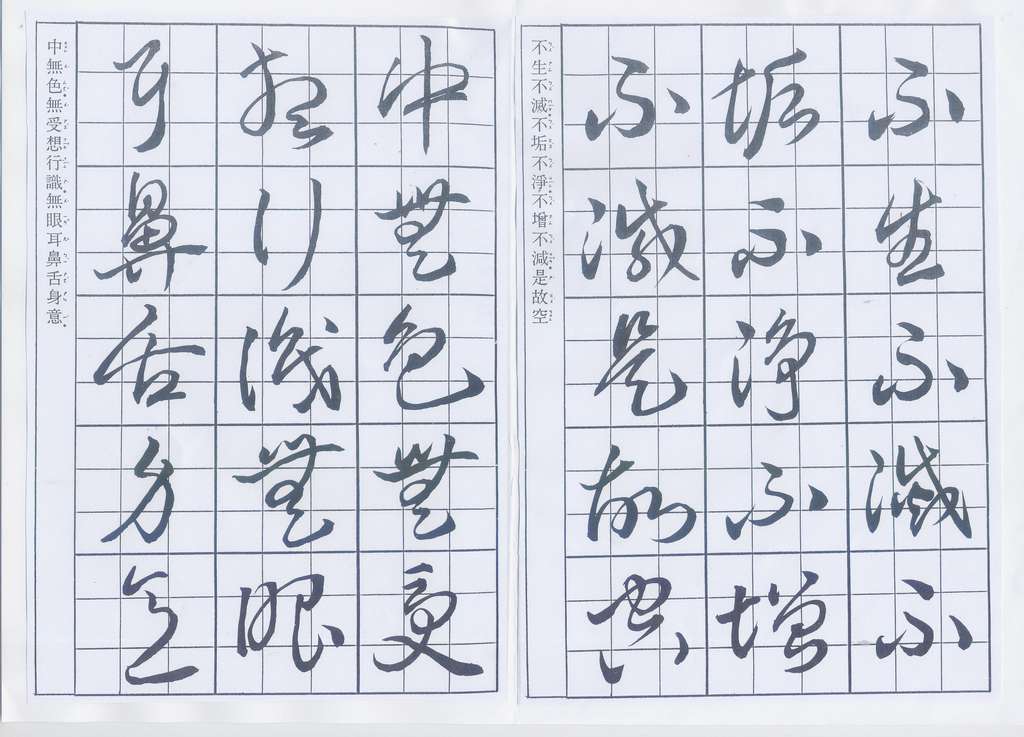 不生不滅不
垢不淨不增
不減是故空
不生不滅不垢不淨不增不減是故空
中無色無受
想行識無眼
耳鼻舌身意
中無色無受想行識無眼耳鼻舌身意